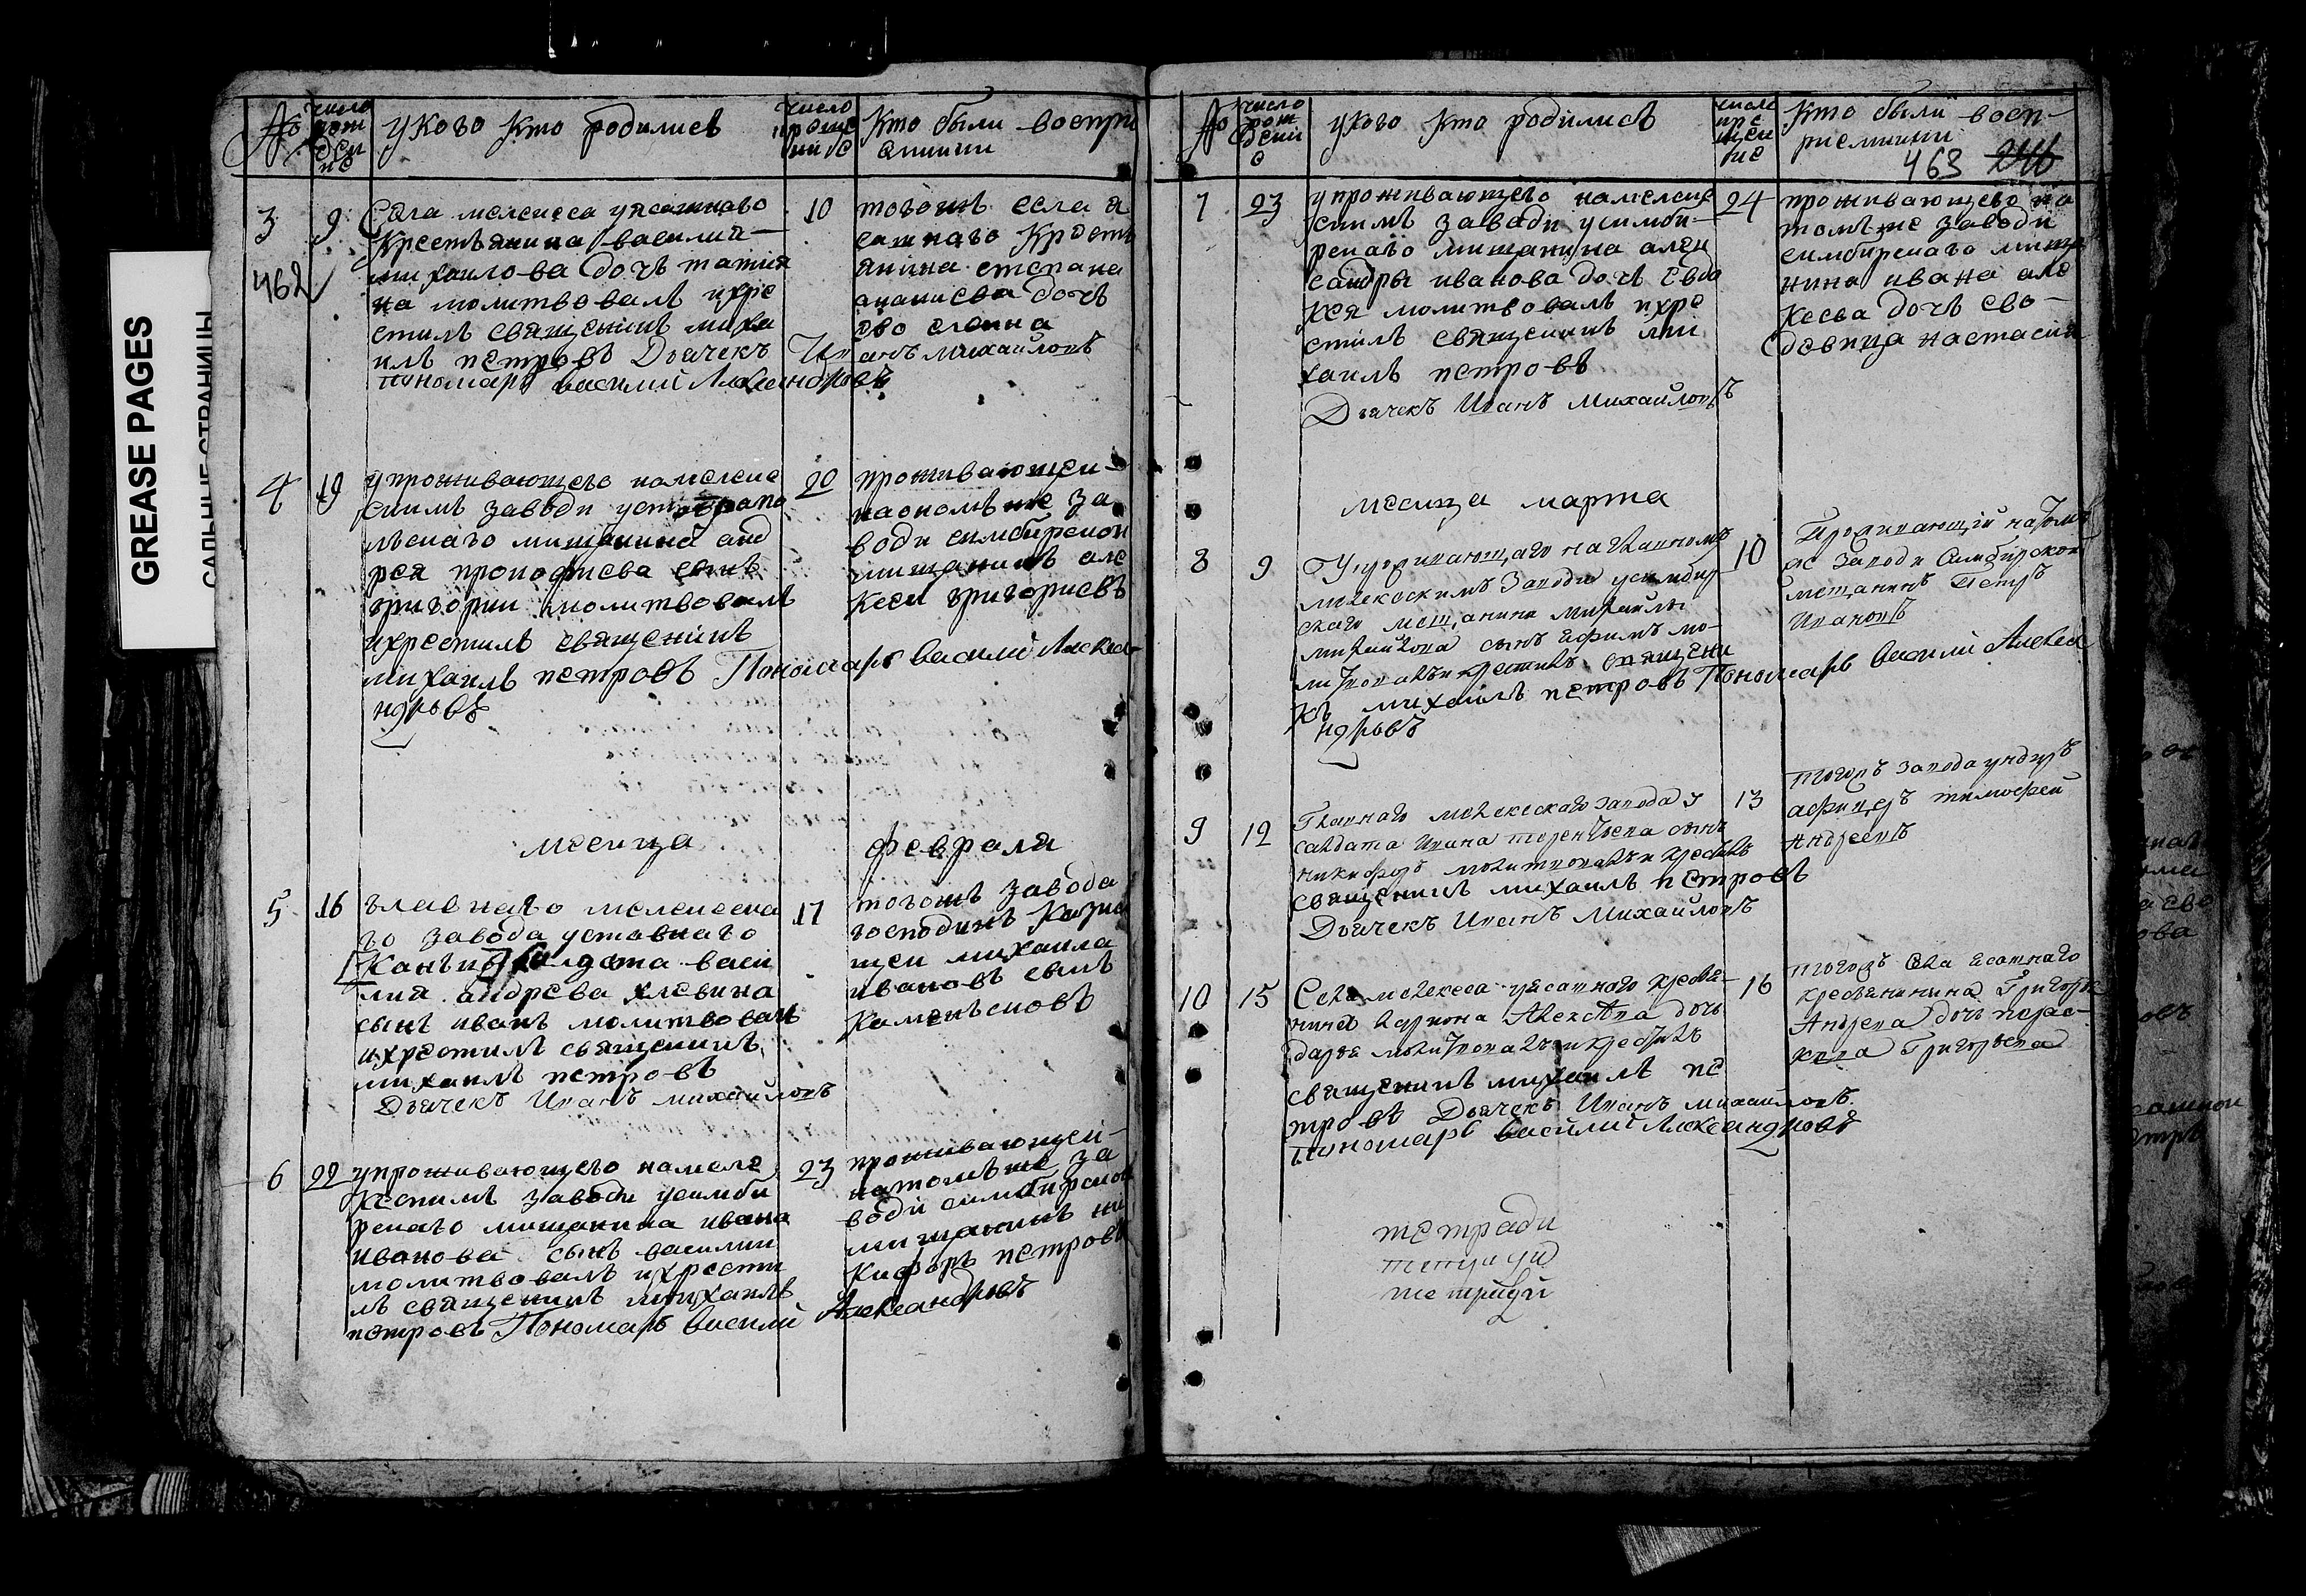 GREASE PAGES
САЛЬНЫЕ СТРАНИЦЫ
№ число рождение
у Кого Кто родились
число крещение
Кто были восприемники
3 9
462
Села мелекеса уясашнаго
Крестьянина василия
михаилова дочь татия
на молитвовалъ икре
стилъ священикъ миха
илъ петровъ Дьячекъ Иванъ михайловъ
пономарь василий Александровъ
10
тогожъ села я
сашнаго Кресть
янина степана
ананиева дочь
ево елена
4 19
упроживающего намелеке
скимъ заводи уставрапо
льскаго мищанина анд
рея прокофиева сынъ
григории молитвовалъ
икрестилъ священикъ
михаилъ петровъ Пономарь василий Алекса
ндровъ
20
проживающеи
наономъже за
води симбирскои
мищанинъ але
Ксеи григориевъ
месица февраля
5 16
главнаго мелекеска
го завода уставнаго
василия андрева хлевина
сынъ иванъ молитвовалъ
икрестилъ священикъ
михаилъ петровъ
Дьячекъ Иванъ михайловъ
17
тогожъ завода
господинъ Казна
щеи михаила
ивановъ сынъ
Каменсковъ
6 22
упроживающего намеле
Кескимъ заводи усимби
рскаго мищанина ивана
иванова сынъ василии
молитвовалъ икрести
лъ священикъ михаилъ
петровъ Пономарь василий Александровъ
23
проживающеи
натомъже за
води симбирскои
мищанинъ ни
Кифоръ петровъ
№ число рождение
у Кого Кто родились
число крещение
Кто были восприемники
463 246
7 23
упроживающего намелеке
скимъ заводи усимби
рскаго мищанина алек
сандры иванова дочь Евдо
Кея молитвовалъ икре
стилъ священикъ ми
хаилъ петровъ
Дьячекъ Иванъ Михайловъ
24
проживающего на
томъже заводи
симбирскаго мища
нина ивана але
Ксева дочь ево
девица настасия
месица марта
8 9
Упроживающаго наглавномъ
мелекескимъ Заводи усимбир
скаго мещанина михайлы
михайлова сынъ ефимъ мо
литвовалъ икрестилъ священи
къ михаилъ петровъ Пономарь василий Алекса
ндровъ
10
Проживающий натомъ
же Заводи Симбирской
мещанинъ петръ
Ивановъ
9 12
Главнаго мелекескаго завода у
салдата Ивана терентьева сынъ
никифоръ молитвовалъ и крестилъ
священикъ михаилъ петровъ
Дьячекъ Иванъ Михайловъ
13
тогожъ Завода ундиръ
афицеръ тимофей
Андреевъ
10 15
Села мелекеса уясашного крестья
нина Алексеева дочь
дарья молитвовалъ икрестилъ
священикъ михаилъ пе
тровъ Дьячекъ Иванъ михайловъ
пономарь василий Александровъ
16
тогожъ Села ясашнаго
крестьянинина Григорья
Андреева дочь парас
кева Григорьева
тетради
тетради
тетради